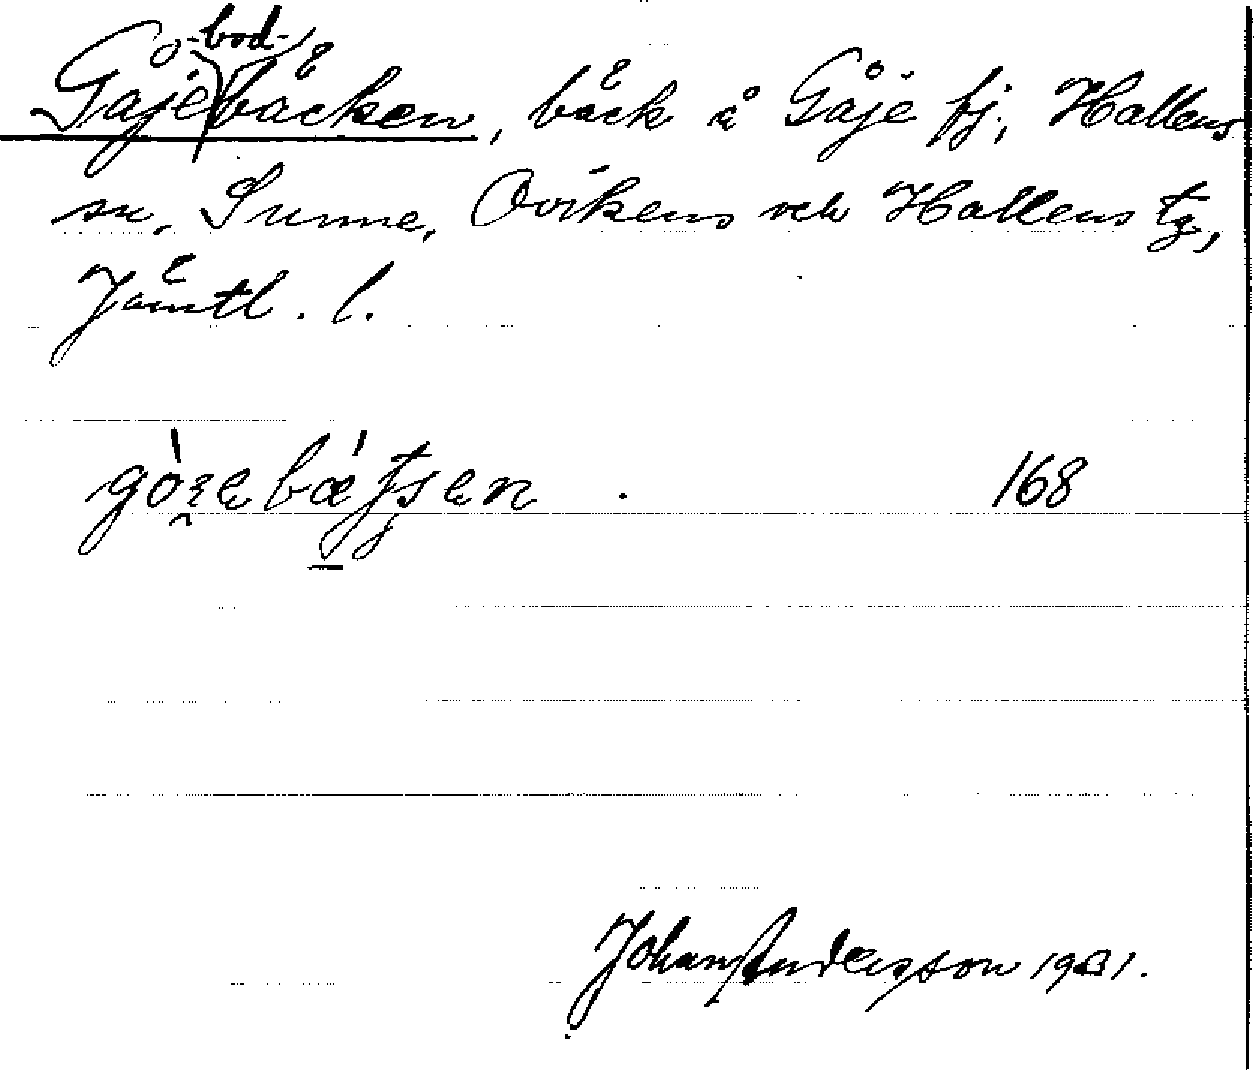 -bod-
Gåjebäcken, bäck å Gåje fj., Hallens
sn, Sunne, Ovikens och Hallens tg,
Jämtl. l.
168
Johan Andersson 1931.